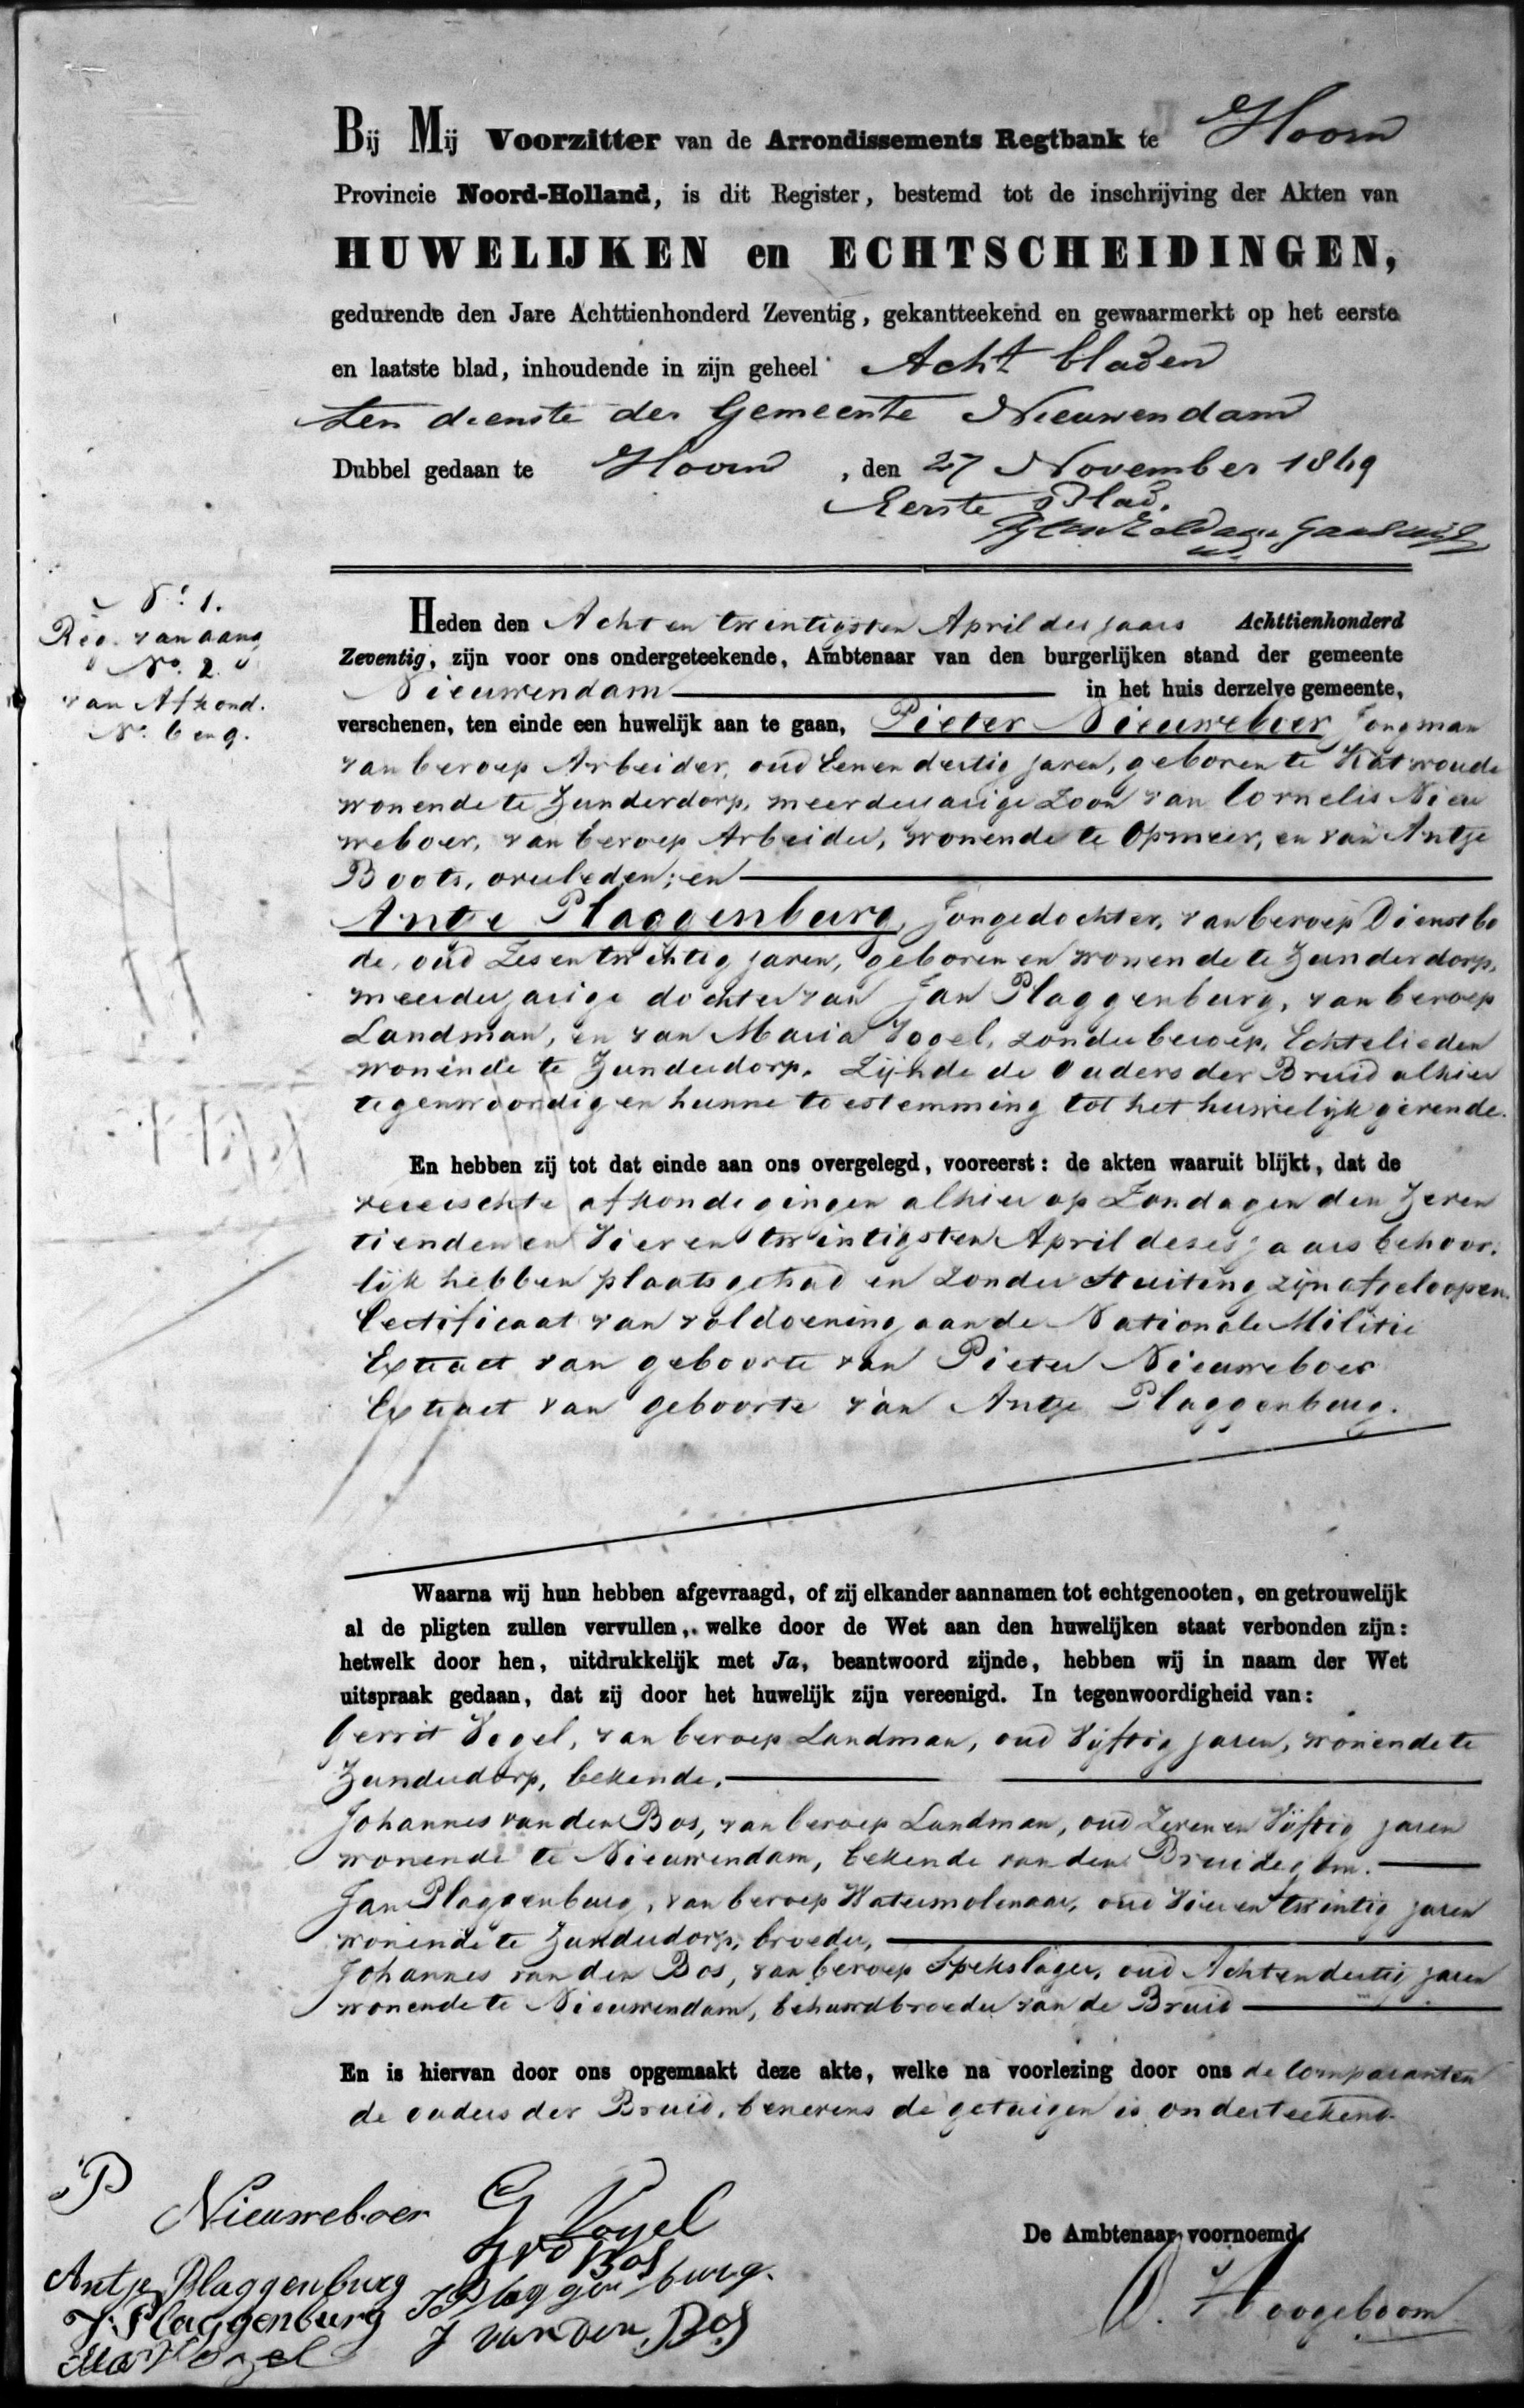 Bij Mij Voorzitter van de Arrondissements Regtbank te Hoorn
Provincie Noord-Holland, is dit Register, bestemd tot de inschrijving der Akten van
HUWELIJKEN en ECHTSCHEIDINGEN,
gedurende den Jare Achttienhonderd Zeventig, gekantteekend en gewaarmerkt op het eerste
en laatste blad, inhoudende in zijn geheel Acht bladen
ten dienste der Gemeente Nieuwendam
Dubbel gedaan te Hoorn, den 27 November 1869
Eerste Blad.
No. 1.
Reg. van aang
No. 2.
van Afkond.
No. 6 en 9.
Heden den Acht en twintigsten April des jaars Achttienhonderd
Zeventig, zijn voor ons ondergeteekende, Ambtenaar van den burgerlijken stand der gemeente
Nieuwendam in het huis derzelve gemeente,
verschenen, ten einde een huwelijk aan te gaan, Pieter Nieuweboer Jongman
van beroep Arbeider, oud Eenendertig jaren, geboren te Katwoude
wonende te Zunderdorp, meerderjarige Zoon van Cornelis Nieu
weboer, van beroep Arbeider, wonende te Opmeer, en van Antje
Boots, overleden; en
Antje Plaggenburg, Jongedochter, van beroep Dienstbo
de, oud Zesentwintig jaren, geboren en wonende te Zunderdorp,
meerderjarige dochter van Jan Plaggenburg, van beroep
Landman, en van Maria Vogel, zonder beroep, Echtelieden
wonende te Zunderdorp. Zijnde de Ouders der Bruid alhier
tegenwoordig en hunne toestemming tot het huwelijk gevende.
En hebben zij tot dat einde aan ons overgelegd, vooreerst: de akten waaruit blijkt, dat de
vereischte afkondigingen alhier op Zondagen den Zeven
tienden en Vier en twintigsten April dezes jaars behoor-
lijk hebben plaats gehad en zonder stuiting zijn afgeloopen.
Certificaat van voldoening aan de Nationale Militie
Extract van geboorte van Pieter Nieuweboer
Extract van geboorte van Antje Plaggenburg.
Waarna wij hun hebben afgevraagd, of zij elkander aannamen tot echtgenooten, en getrouwelijk
al de pligten zullen vervullen, welke door de Wet aan den huwelijken staat verbonden zijn:
hetwelk door hen, uitdrukkelijk met Ja, beantwoord zijnde, hebben wij in naam der Wet
uitspraak gedaan, dat zij door het huwelijk zijn vereenigd. In tegenwoordigheid van:
Gerrit Vogel, van beroep Landman, oud Vijftig jaren, wonende te
Zunderdorp, bekende,
Johannes van den Bos, van beroep Landman, oud Zeven en Vijftig jaren
wonende te Nieuwendam, bekende van den Bruidegom.
Jan Plaggenburg, van beroep Watermolenaar, oud Vier en twintig jaren
wonende te Zunderdorp, broeder,
Johannes van den Bos, van beroep Spekslager, oud Achtendertig jaren
wonende te Nieuwendam, behuwdbroeder van de Bruid
En is hiervan door ons opgemaakt deze akte, welke na voorlezing door ons de Comparanten
de ouders der Bruid, benevens de getuigen is onderteekend.
P Nieuweboer
Antje Plaggenburg
J. Plaggenburg
Ma Vogel
G Vogel
J v d Bos
J Plaggenburg.
J van den Bos
De Ambtenaar voornoemd,
D. Hoogeboom